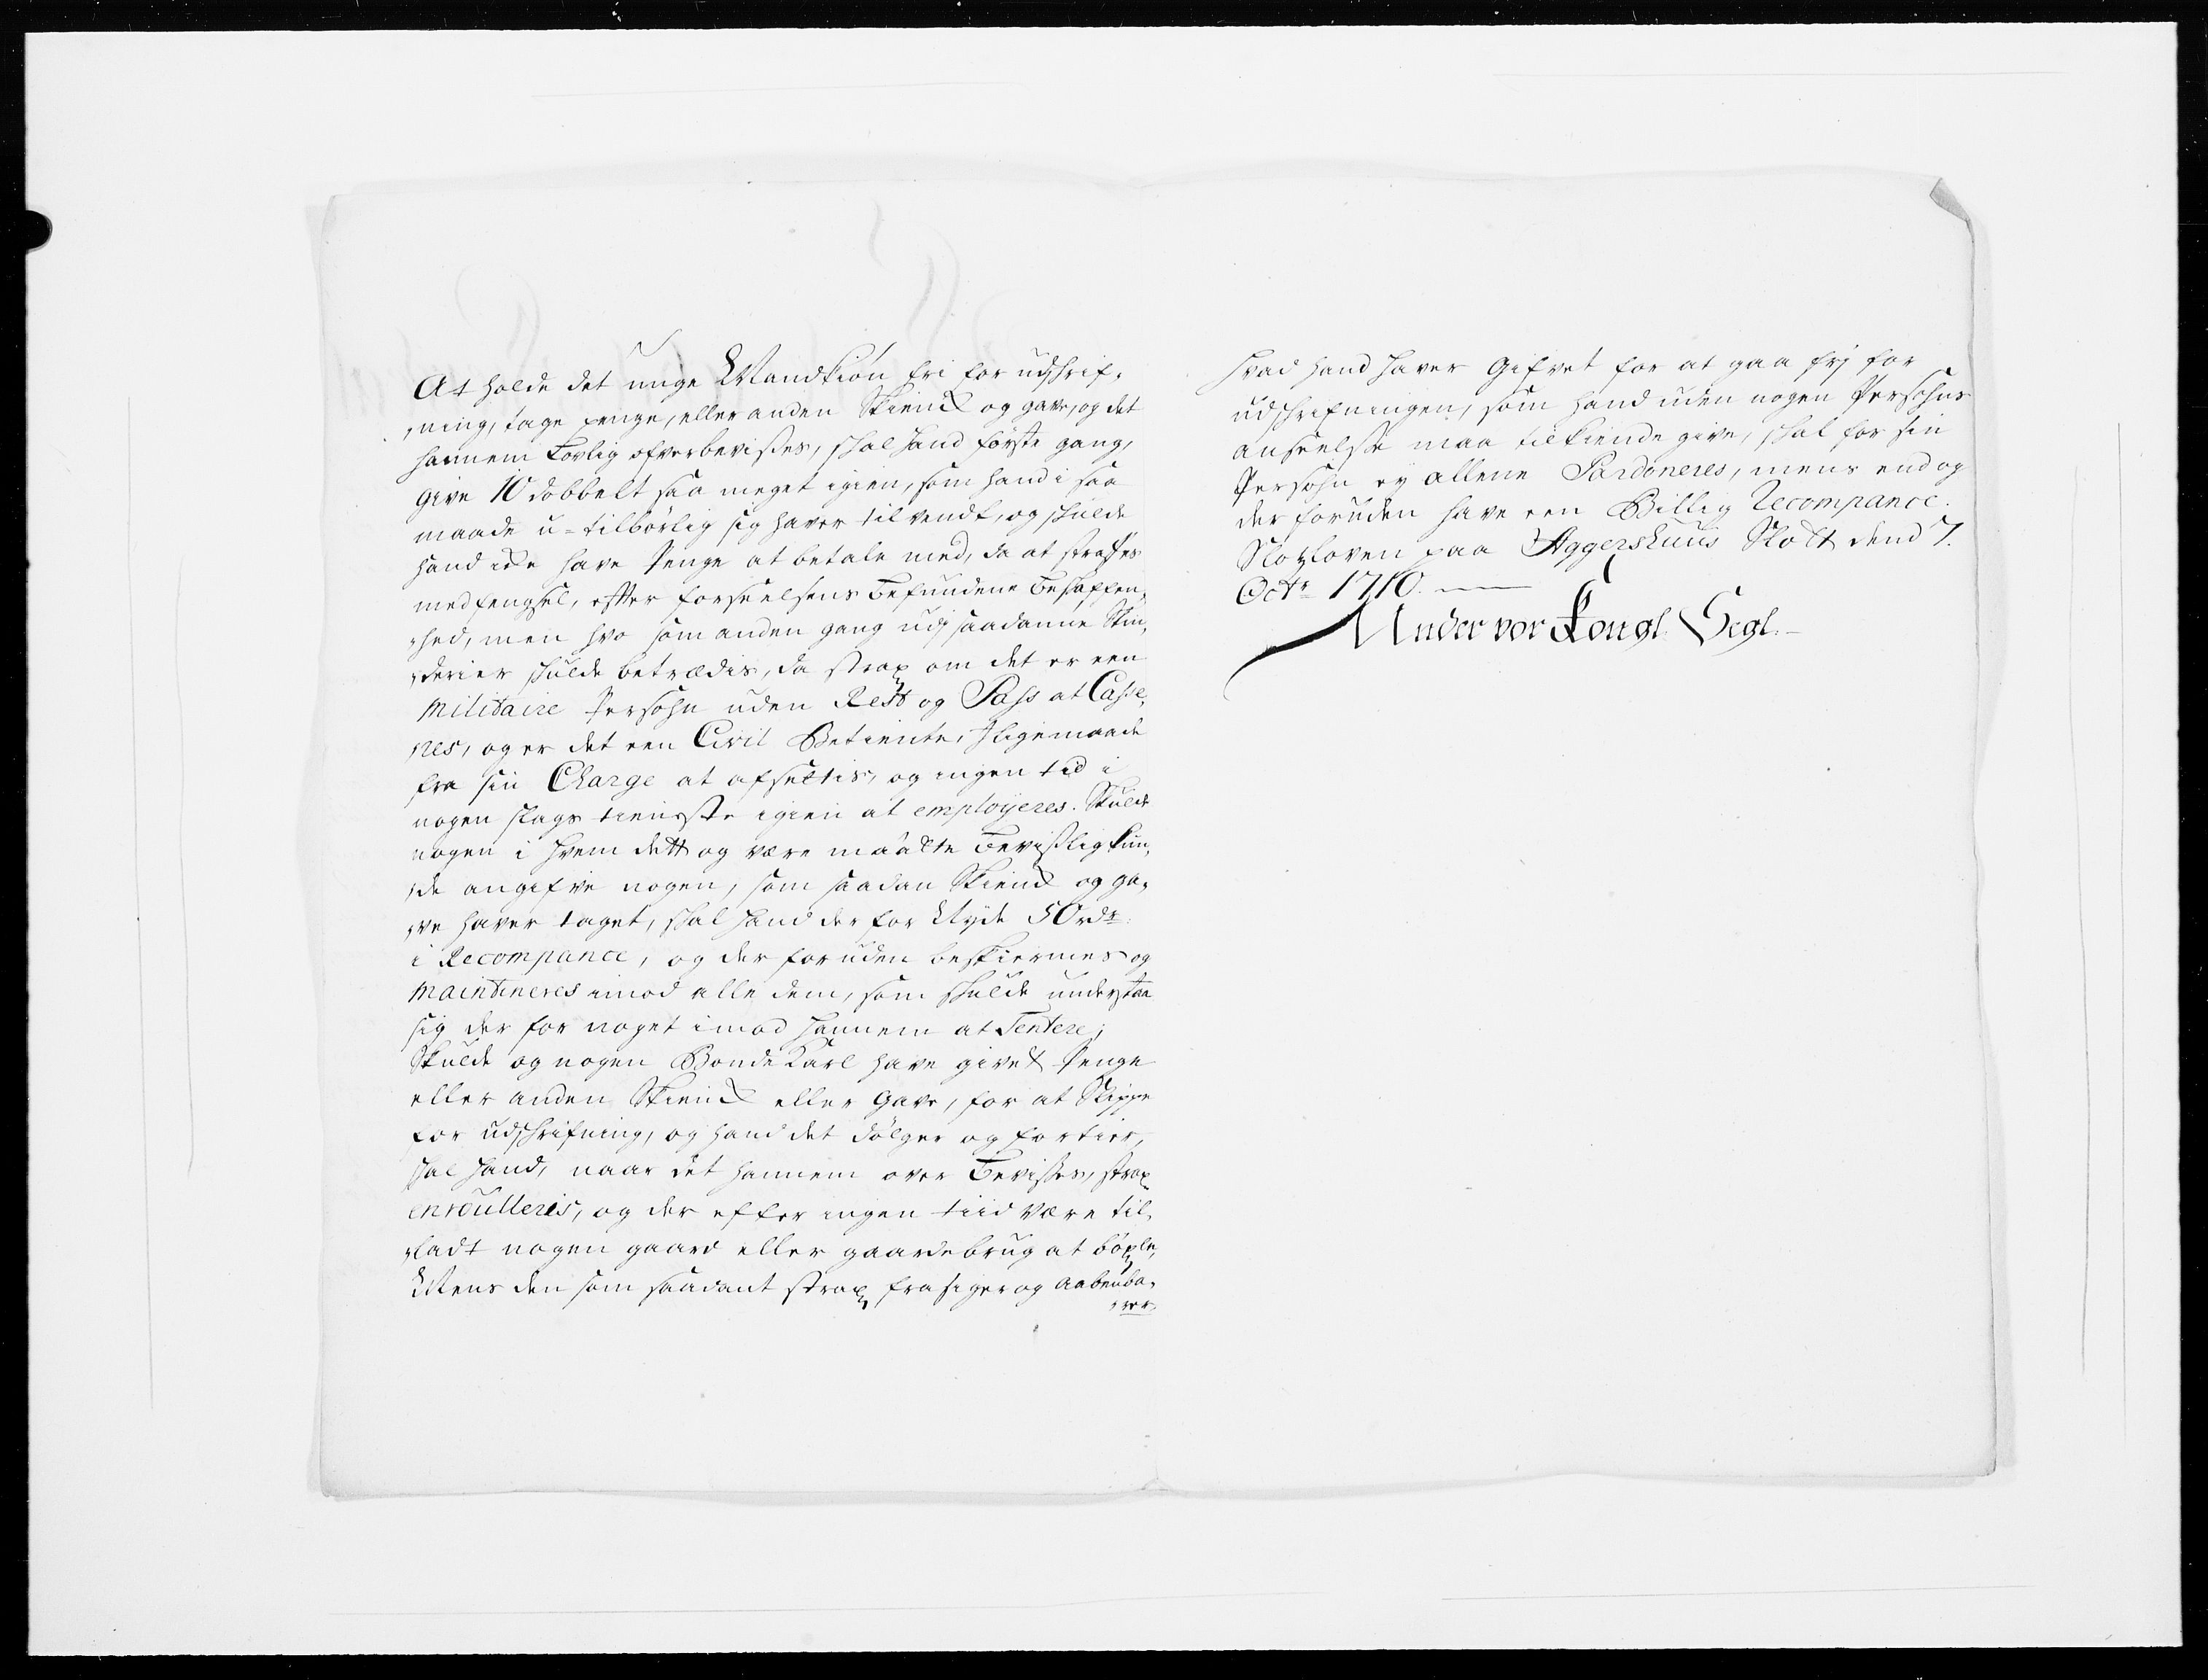 At holde det unge Mandkiön fri for udskrif¬
ning, tage penge, eller anden Skienck og gave, og det
hannem Lovlig ofverbevises, skal hand förste gang,
give 10 dobbelt saa meget igien, som hand i saa
maade u-tilbörlig sig haver tilvendt, og skulde
hand icke have Penge at betale med, da at straffes
med fengsel, efter forseelsens Befundene Beskaffen¬
hed, men hvo som anden gang udj saadanne Skin¬
derier skulde betrædis, da strax om det er een
Militaire Persohn uden Rett og Pass at Casse¬
res, og er det een Civil Betiente, I ligemaade
fra sin Charge at afsettis, og ingen tid i
nogen slags tieneste igien at employeres. Skulde
nogen i hvem dett og være maatte Bevislig kun¬
de angifve nogen, som saadan Skienck og ga¬
ve haver taget, skal hand der for Nyde 50 rdr.
i Recompance, og der foruden beskiermes og
Maintineres imod alle dem, som skulde understaa
sig der for noget imod hannem at Tentere;
Skulde og nogen Bonde Karl have givet Penge
eller anden Skienck eller Gave, for at Slippe
for udskrifning, og hand det dölger og fortier,
skal hand, naar det hannem over Bevises, strax
enroulleris, og der efter ingen tiid være til¬
ladt nogen gaard eller gaardebrug at böxle,
Mens den som saadant strax fra siger og aabenba¬
rer
hvad hand haver Gifvet for at gaa frj for
udskrifningen, som hand uden nogen Persohns
anseelse maa tilkiende give, skal for sin
Persohn ey allene Pardoneres, mens end og
der foruden have een Billig Recompance.
Slotzloven paa Aggershuus Slott dend 7.
Octr. 1710.
Under vor Kongl. Segl.